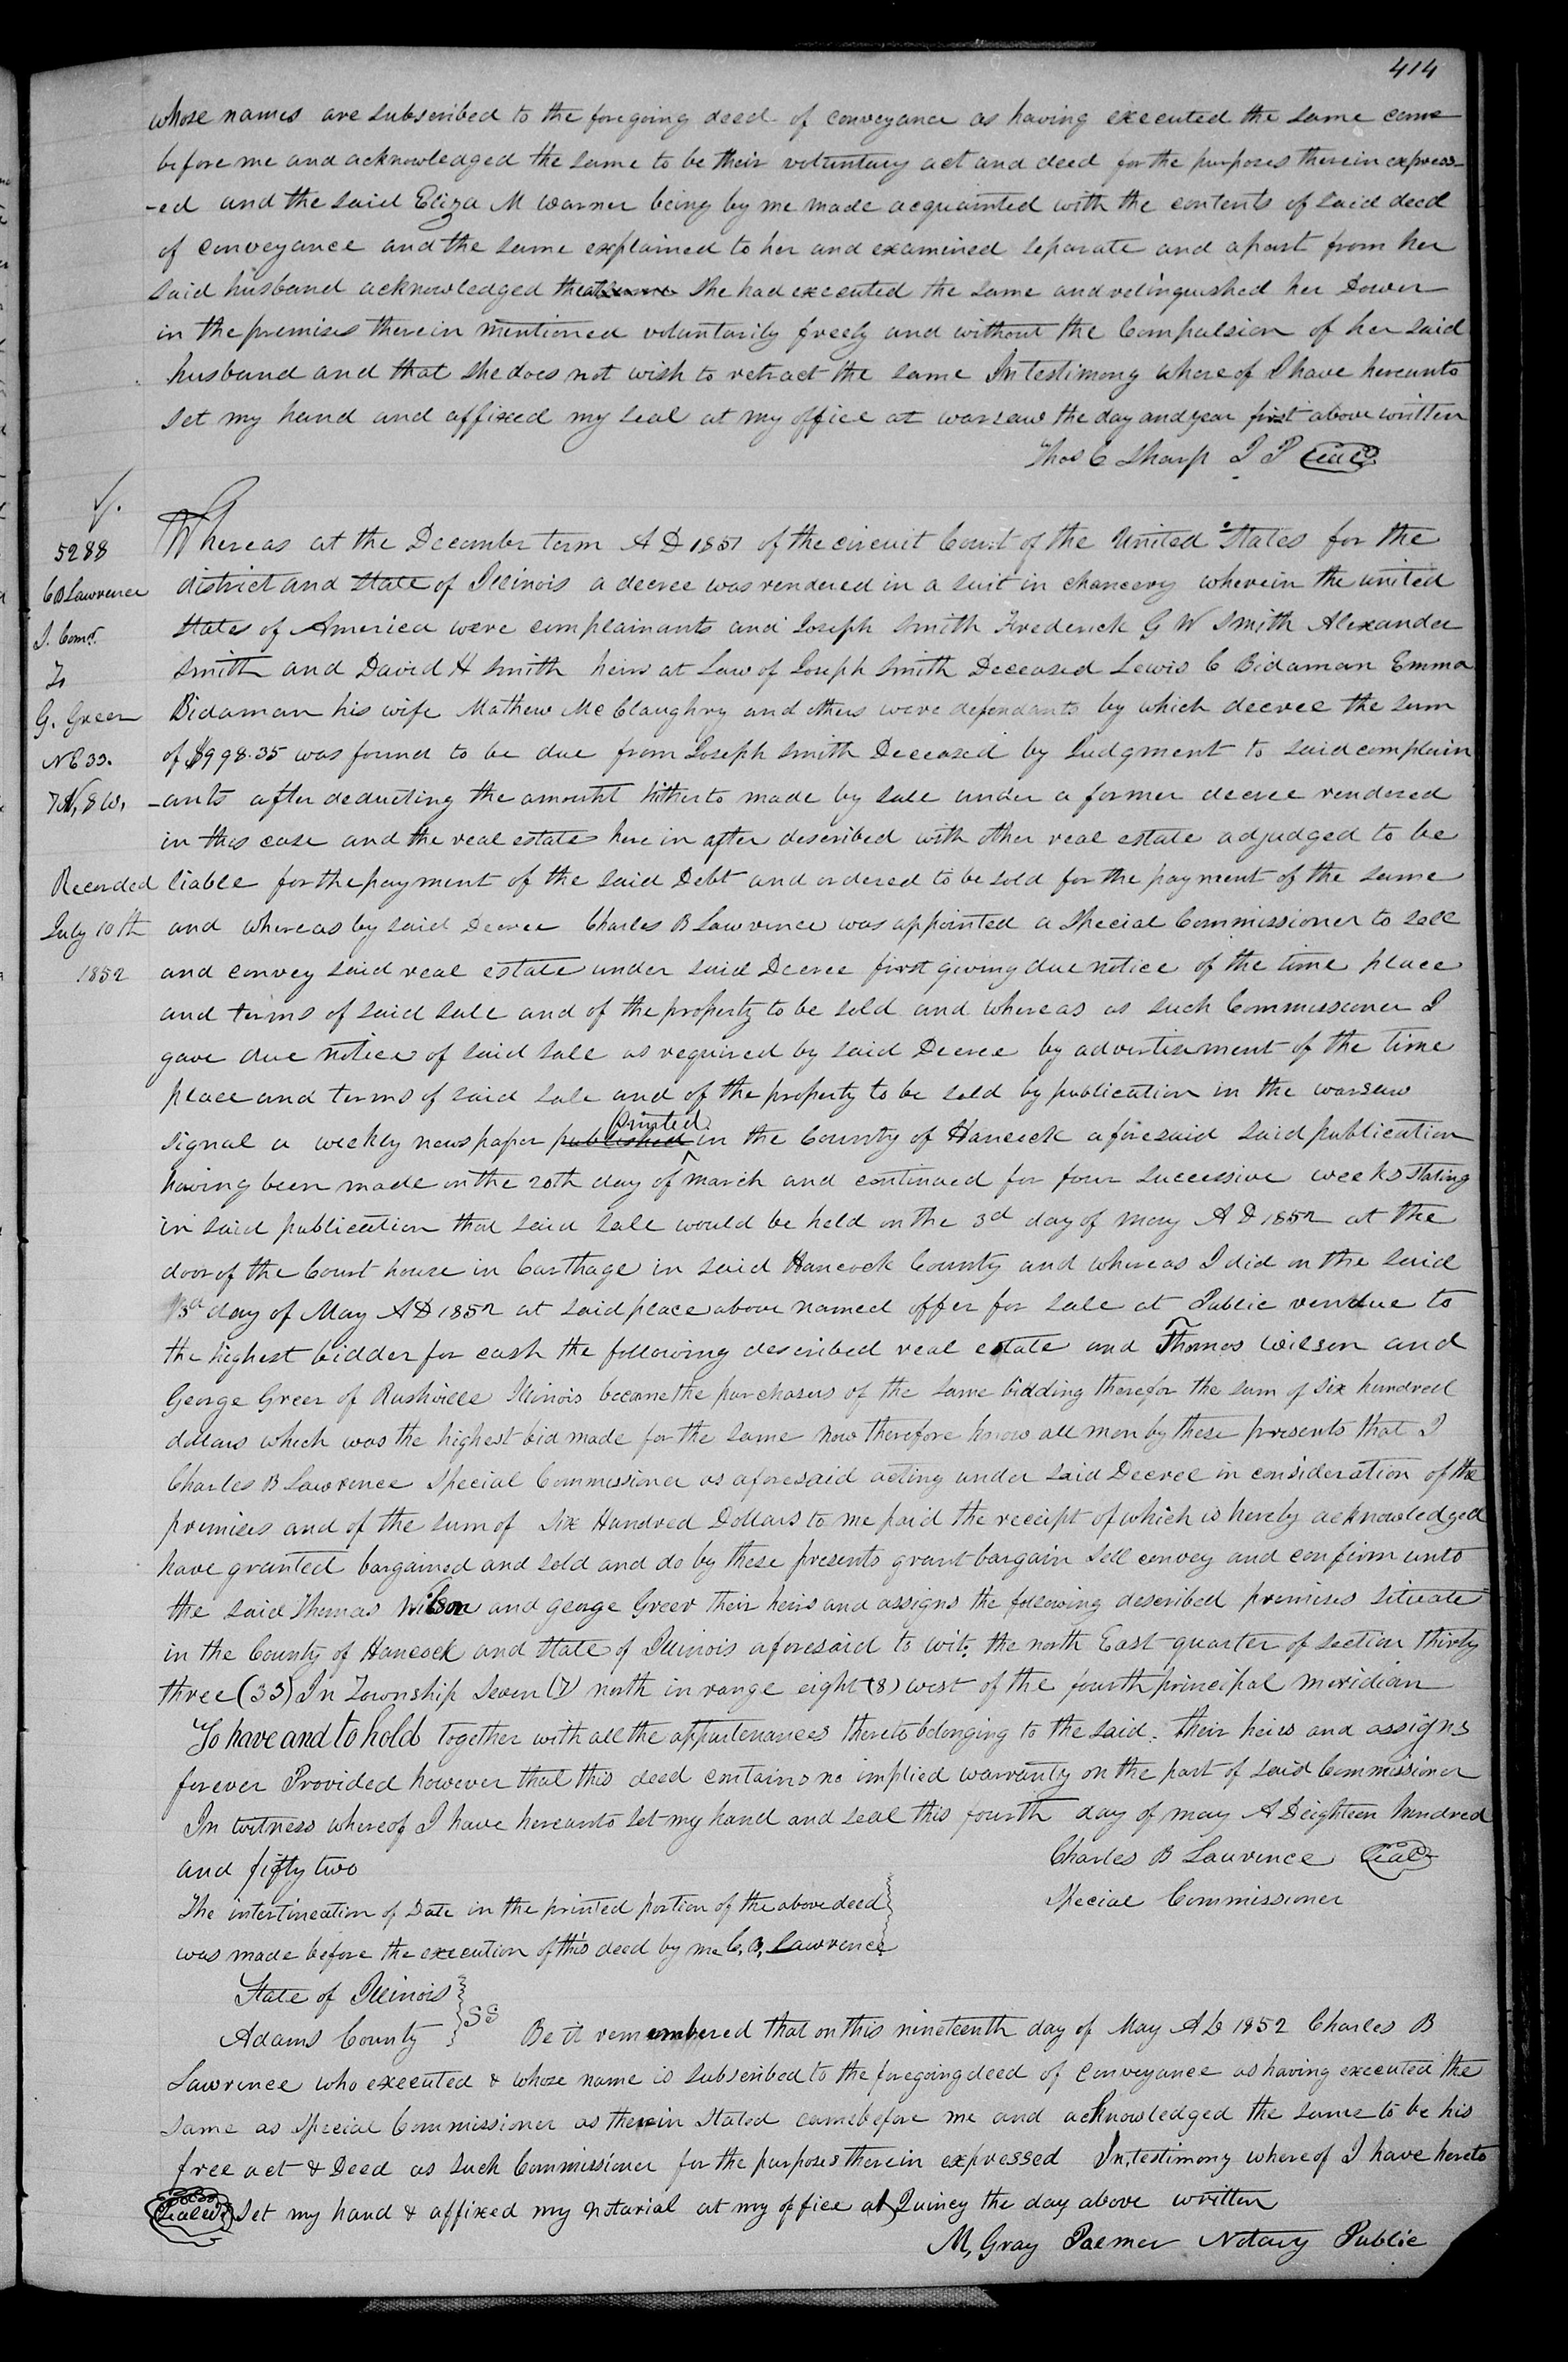 414
whose names are subscribed to the foregoing deed of conveyance as having executed the same came
before me and acknowledged the same to be their voluntary act and deed for the purposes therein express-
-ed and the said Eliza M Warner being by me made acquainted with the contents of said deed
of conveyance and the same explained to her and examined separate and apart from her
said husband acknowledged that she had executed the same and relinquished her Dower
in the premises therein mentioned voluntarily freely and without the Compulsion of her said
husband and that she does not wish to retract the same In testimony whereof I have hereunto
set my hand and affixed my seal at my office at warsaw the day and year first above written
Thos C Sharp J P Seal
5288
C B Lawrence
S. Comr.
To
G. Greer
NE 33.
7N, 8W,
Recorded
July 10th
1852
Whereas at the December term A D 1851 of the circuit Court of the United States for the
district and state of Illinois a decree was rendered in a suit in chancery wherein the united
States of America were complainants and Joseph Smith Frederick G W Smith Alexander
Smith and David H Smith heirs at Law of Joseph Smith Deceased Lewis C Bidaman Emma
Bidaman his wife Mathew McClaughry and others were defendants by which decree the sum
of $998.35 was found to be due from Joseph Smith Deceased by Judgment to said complain
-ants after deducting the amount hitherto made by sale under a former decree rendered
in this case and the real estate here in after described with other real estate adjudged to be
liable for the payment of the said Debt and ordered to be sold for the payment of the same
and whereas by said Decree Charles B Lawrence was appointed a Special Commissioner to sell
and convey said real estate under said Decree first giving due notice of the time place
and terms of said sale and of the property to be sold and whereas as such Commissioner I
gave due notice of said sale as required by said Decree by advertisement of the time
place and terms of said sale and of the property to be sold by publication in the warsaw
signal a weekly newspaper published printed in the County of Hancock aforesaid said publication
having been made on the 20th day of march and continued for four successive weeks stating
in said publication that said sale would be held on the 3d day of may A D 1852 at the
door of the Court house in Carthage in said Hancock County and whereas I did on the said
3d day of May A D 1852 at said place above named offer for sale at Public vendue to
the highest bidder for cash the following described real estate and Thomas Wilson and
George Greer of Rushville Illinois became the purchasers of the same bidding therefor the sum of six hundred
dollars which was the highest bid made for the same now therefore know all men by these presents that I
Charles B Lawrence Special Commissioner as aforesaid acting under said Decree in consideration of the
premises and of the sum of Six Hundred Dollars to me paid the receipt of which is hereby acknowledged
have granted bargained and sold and do by these presents grant bargain sell convey and confirm unto
the said Thomas Wilson and george Greer their heirs and assigns the following described premises situate
in the County of Hancock and State of Illinois aforesaid to wit; the north East quarter of section thirty
three (33) In Township Seven (7) north in range eight (8) west of the fourth principal meridian
To have and to hold together with all the appurtenances thereto belonging to the said. their heirs and assigns
forever Provided however that this deed contains no implied warranty on the part of said Commissioner
In witness whereof I have hereunto set my hand and seal this fourth day of may A D eighteen hundred
and fifty two
Charles B Lawrence Seal
Special Commissioner
The interlineation of Date in the printed portion of the above deed
was made before the execution of this deed by me C, B, Lawrence
State of Illinois
Adams County SS Be it remembered that on this nineteenth day of May A D 1852 Charles B
Lawrence who executed & whose name is subscribed to the foregoing deed of conveyance as having executed the
same as special Commissioner as therein stated came before me and acknowledged the same to be his
free act & Deed as such Commissioner for the purposes therein expressed In testimony whereof I have hereto
set my hand & affixed my notarial at my office at Quincy the day above written
M, Gray Palmer Notary Public